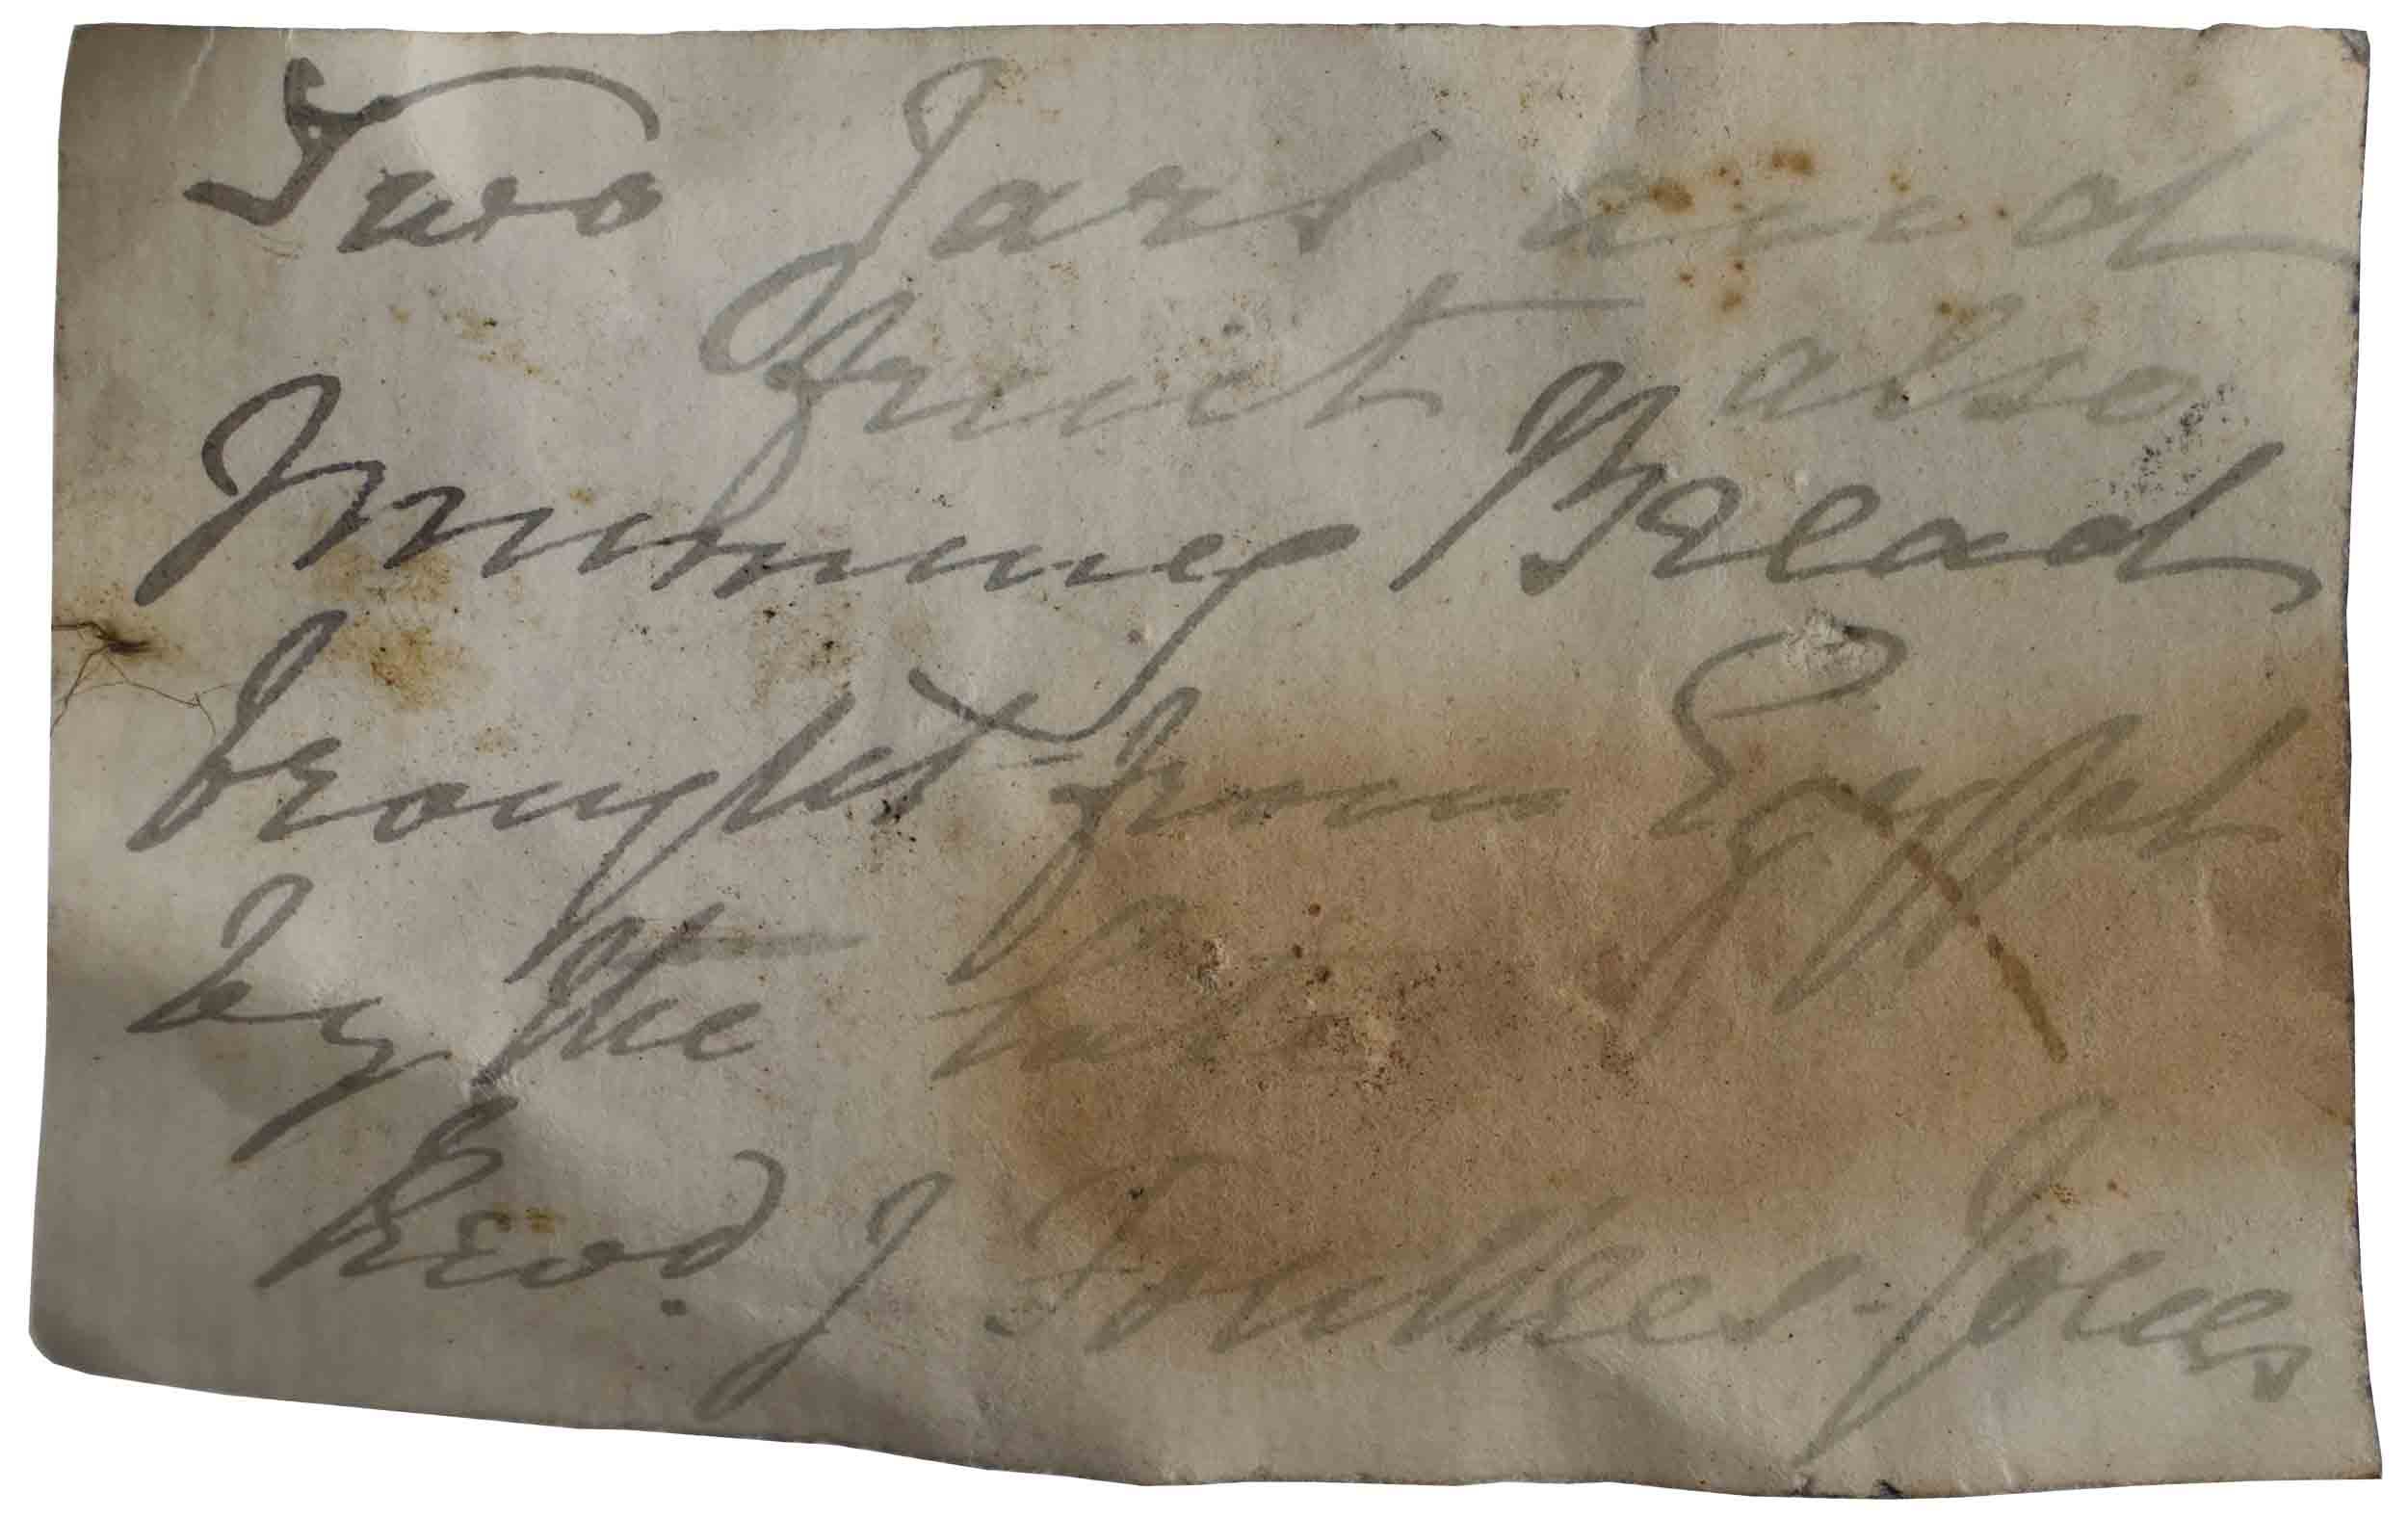 Two Jars and
Fruit also
Mummey Bread
brought from Egypt
by the late
Revd. J Foulkes-Jones